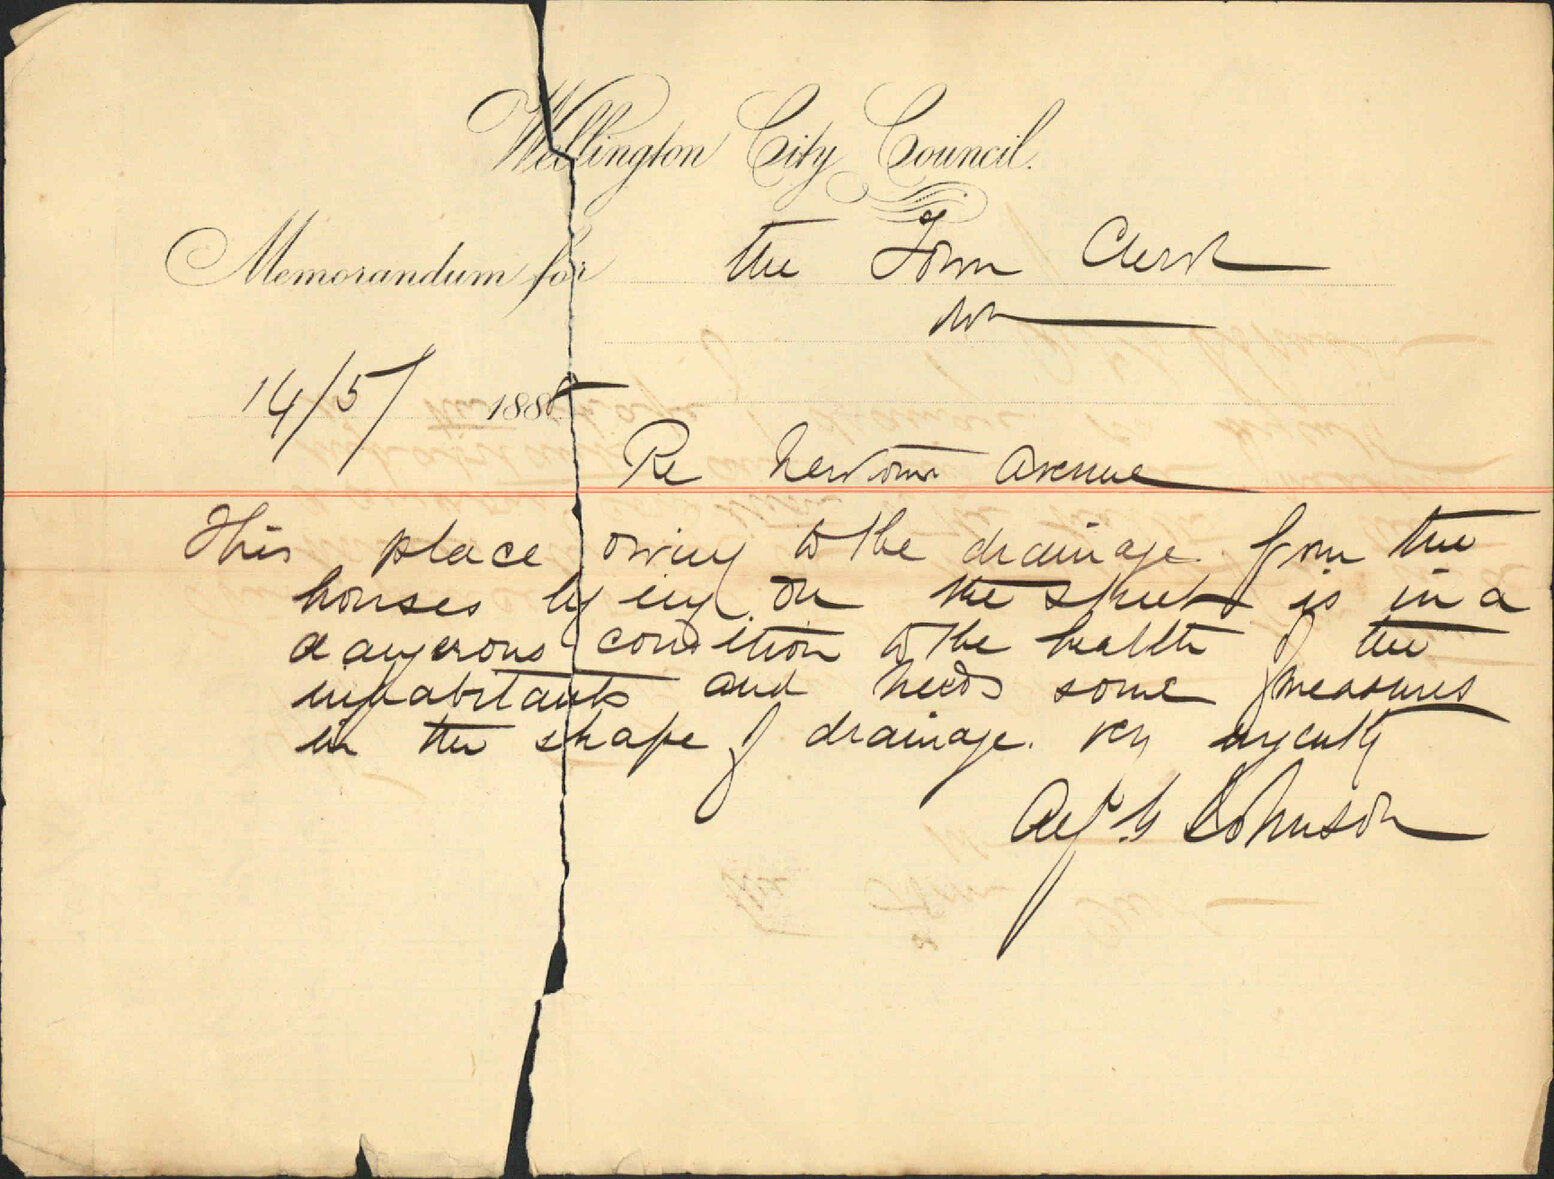 Wellington City Council.
Memorandum for the Town Clerk
14/5/ 188
Re Newtown Avenue
This place owing to the drainage from the
houses lying on the street is in a
dangerous condition to the health of the
inhabitants and needs some measures
in the shape of drainage. very urgently
Alf. G Johnson